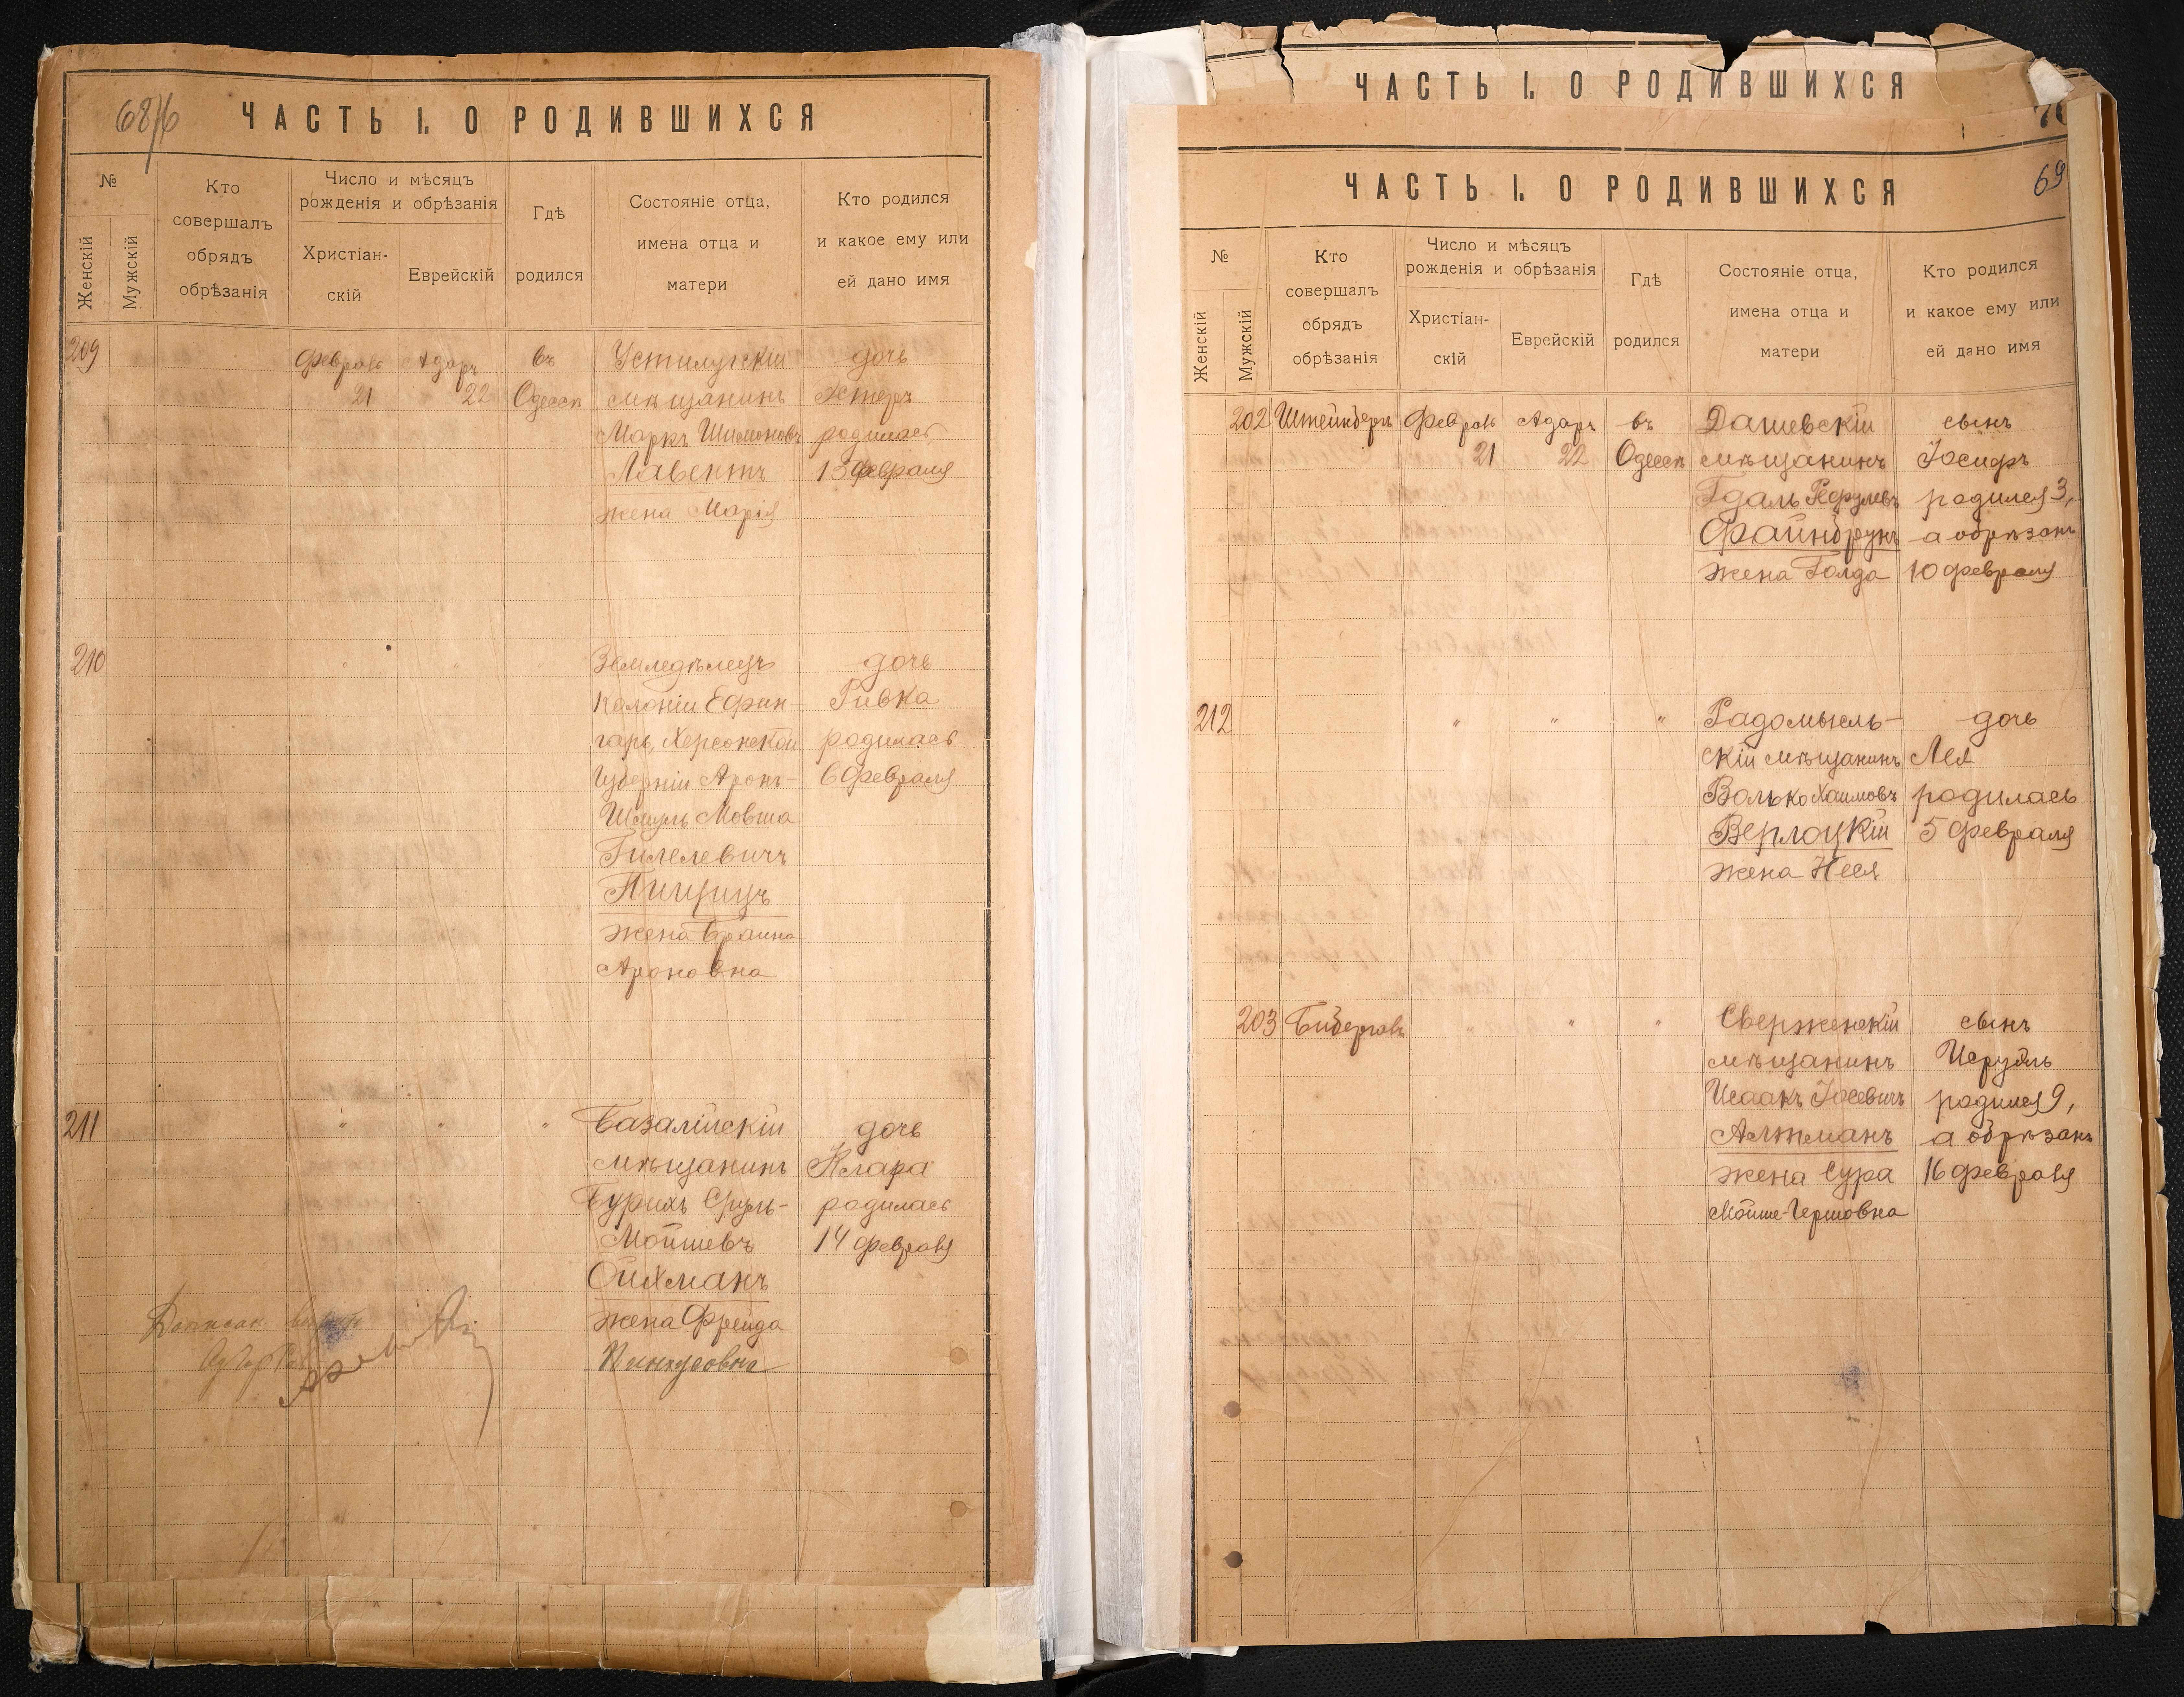 68/б
ЧАСТЬ I. О РОДИВШИХСЯ
№
Женскій
Мужскій
Кто
совершалъ
обрядъ
обрѣзанія
Число и мѣсяцъ
рожденія и обрѣзанія
Христіан-
скій
Еврейскій
Гдѣ
родился
Состояніе отца,
имена отца и
матери
Кто родился
и какое ему или
ей дано имя
209
Февраль
21
Адаръ
22
въ
Одессѣ
Устилугскій
мѣщанинъ
Маркъ Шимоновъ
Лавентъ
жена Марія
дочь
Эстеръ
родилась
13 февраля
210
"
"
"
Земледѣлецъ
Колоніи Ефин-
гаръ, Херсонской
Губерніи Аронъ-
Шмуль Мовша
Гилелевичъ
жена Браина
Ароновна
дочь
Ривка
родилась
6 Февраля
211
"
"
"
Базалійскій
мѣщанинъ
Сруль-
Мойшевъ
Ойхманъ
жена Фрейда
Пинхусовна
дочь
Клара
родилась
14 февраля
ЧАСТЬ I. О РОДИВШИХСЯ
69
ЧАСТЬ I. О РОДИВШИХСЯ
№
Женскій
Мужскій
Кто
совершалъ
обрядъ
обрѣзанія
Число и мѣсяцъ
рожденія и обрѣзанія
Христіан-
скій
Еврейскій
Гдѣ
родился
Состояніе отца,
имена отца и
матери
Кто родился
и какое ему или
ей дано имя
202
Штейнбергъ
Февраль
21
Адаръ
22
въ
Одессѣ
Дашевскій
мѣщанинъ
Гдаль
Файнбрунъ
жена Голда
сынъ
Іосифъ
родился 3,
а обрѣзанъ
10 февраля
212
"
"
"
Радомысль-
скій мѣщанинъ
Волько Хаимовъ
Верлоцкій
жена Неся
дочь
Лея
родилась
5 февраля
203
"
"
"
Сверженскій
мѣщанинъ
Исаакъ Іосевичъ
Алтманъ
жена Сура
Мойше-Гершовна
сынъ
родился 9,
а обрѣзанъ
16 февраля